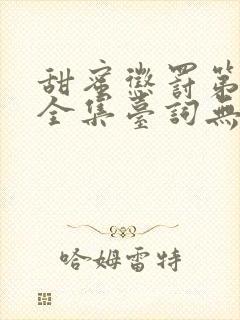 甜蜜懲罰第
全集臺詞無
哈姆雷特